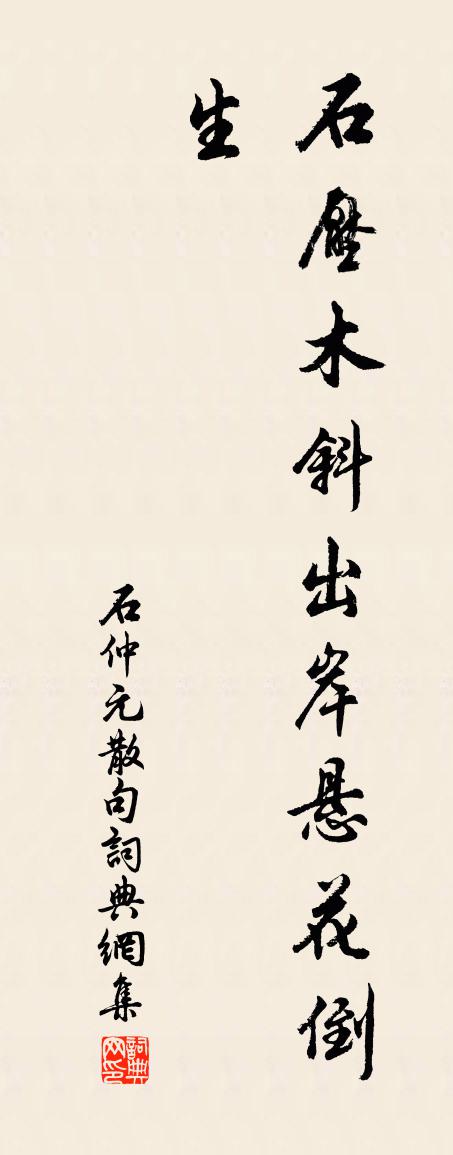 石壓木斜出岸悬花倒
生
石仲元散句詞典網集
詞典网印